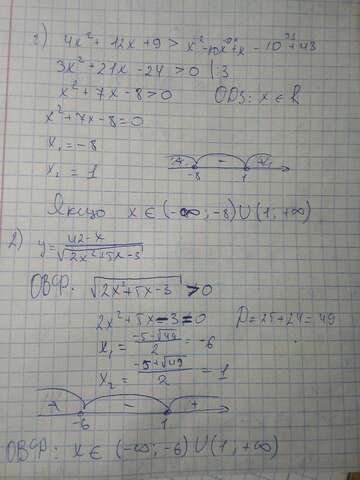 2) 4x² + 12x + 9 > x² - 10x + x - 10 + 43
3x² + 21x - 24 > 0 | 3
x² + 7x - 8 > 0 ОДЗ: x ∈ R
x² + 7x - 8 = 0
x₁ = -8
x₁ = 1
+ - +
-8 1
Якщо x ∈ (-∞; -8) ∪ (1; +∞)
2) y = (42 - x)/√(2x² + 5x - 3)
ОВФ: √(2x² + 5x - 3) > 0
2x² + 5x - 3 = 0 D = 25 + 24 = 49
x₁ = (-5 - √49)/2 = -6
x₂ = (-5 + √49)/2 = 1
+ - +
-6 1
ОВФ: x ∈ (-∞; -6) ∪ (1; +∞)